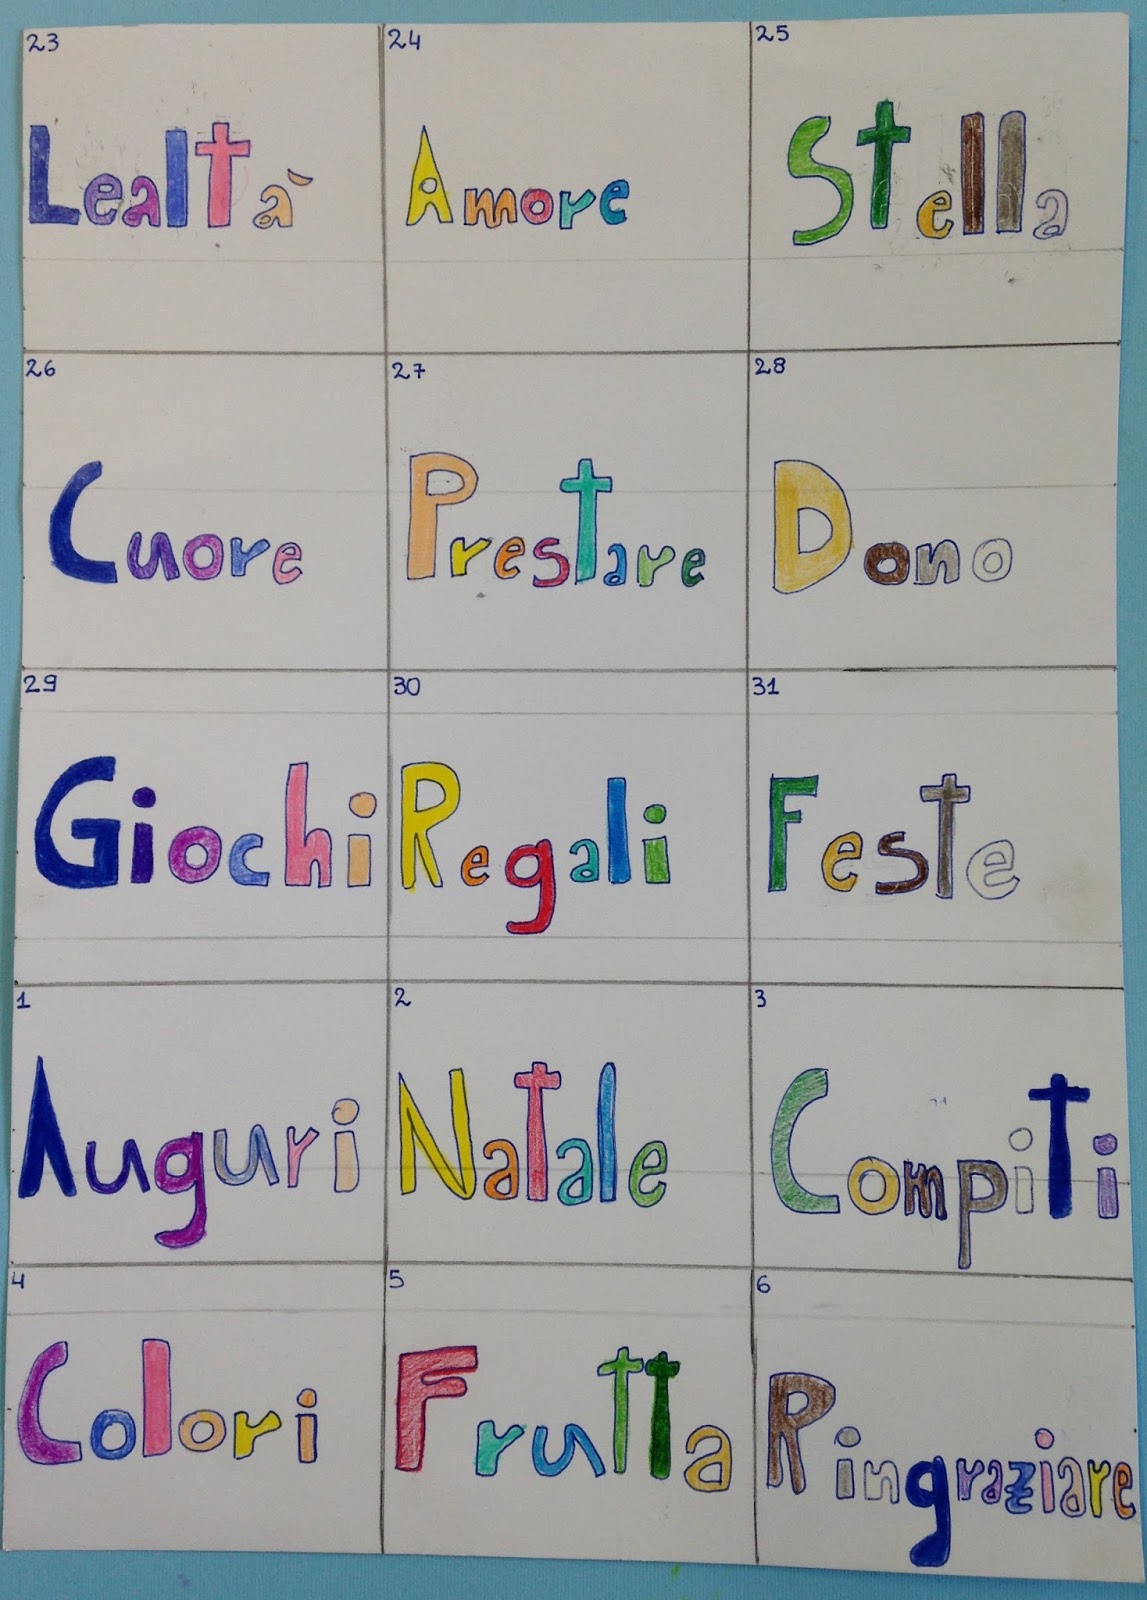 23 24 25
Lealtà Amore Stella
26 27 28
Cuore Prestare Dono
29 30 31
Giochi Regali Feste
1 2 3
Auguri Natale Compiti
4 5 6
Colori Frutta Ringraziare